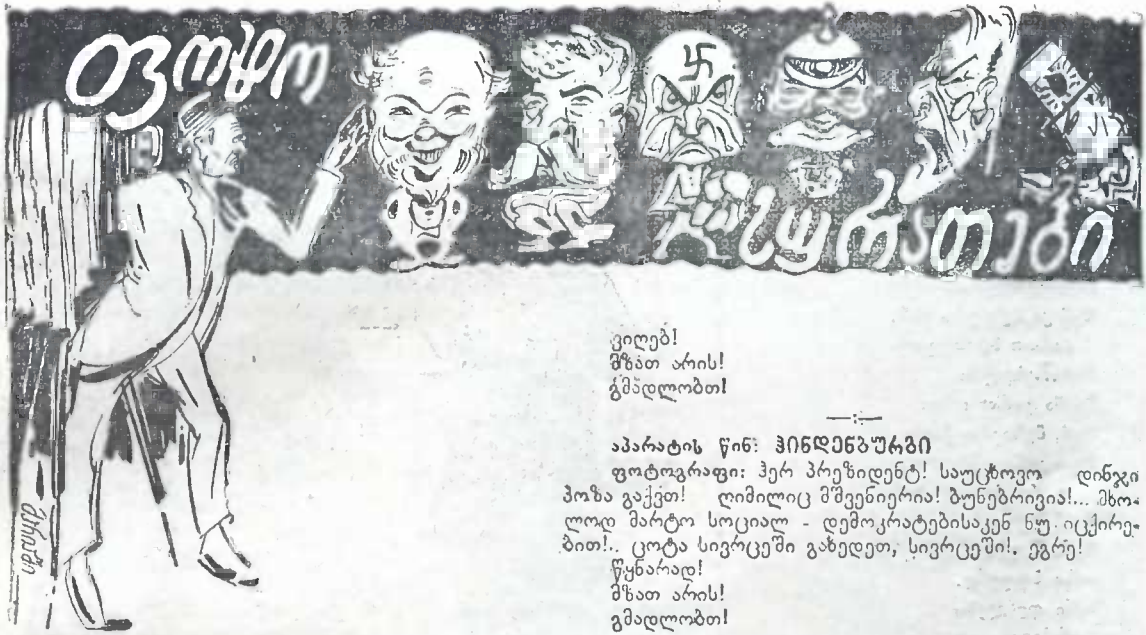 ფოტო
სურათები
ვიღებ!
მზათ არის!
გმადლობთ!
აპარატის წინ: ჰინდენბურგი
ფოტოგრაფი: ჰერ პრეზიდენტ! საუცხოვო დინჯი
პოზა გაქვთ! ღიმილიც მშვენიერია! ბუნებრივია!... მხო-
ლოდ მარტო სოციალ - დემოკრატებისაკენ ნუ იცქირე-
ბით!.. ცოტა სივრცეში გახედეთ, სივრცეში!. ეგრე!
წყნარად!
მზათ არის!
გმადლობთ!